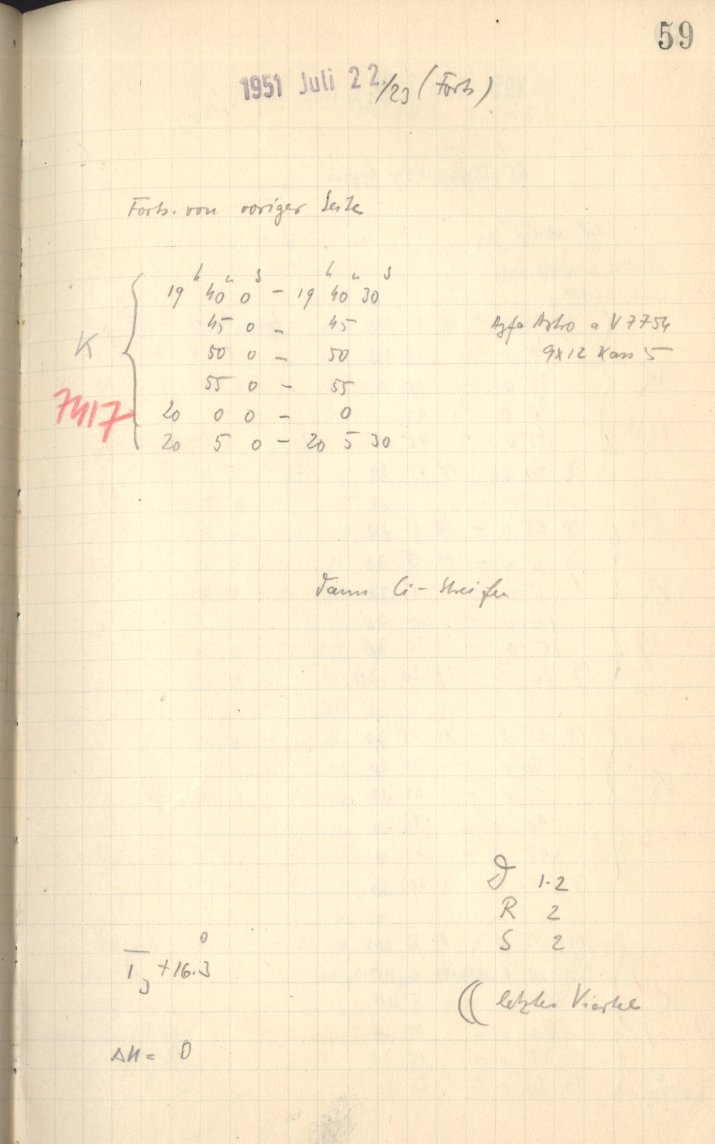 59
1951 Juli 22./23 (Forts)
Forts. von voriger Seite
h m s h m s
19 40 0 - 19 40 30
45 0 - 45
Agfa Astro a V 7754
K
50 0 - 50
9x12 Kass 5
55 0 - 55
7417
20 0 0 - 0
20 5 0 - 20 5 30
Dann Ci-Streifen
D 1-2
R 2
S 2
+16.3°
(( letztes Viertel
ΔH = 0